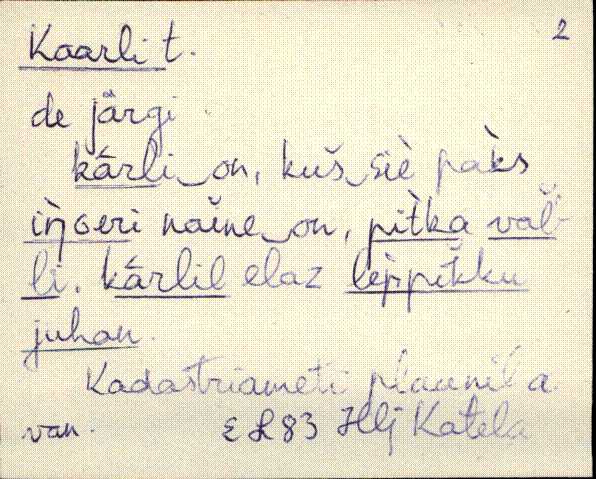 Kaarli t. 2
de järgi
kārli‿on, kuš‿siè pàks
iŋ̀seri naĭne‿on, pìtka val̆-
li. kārlil elaz lèppĭkku
juhan.
Kadastriameti plaanil a.
van. EL83 Hlj Katela